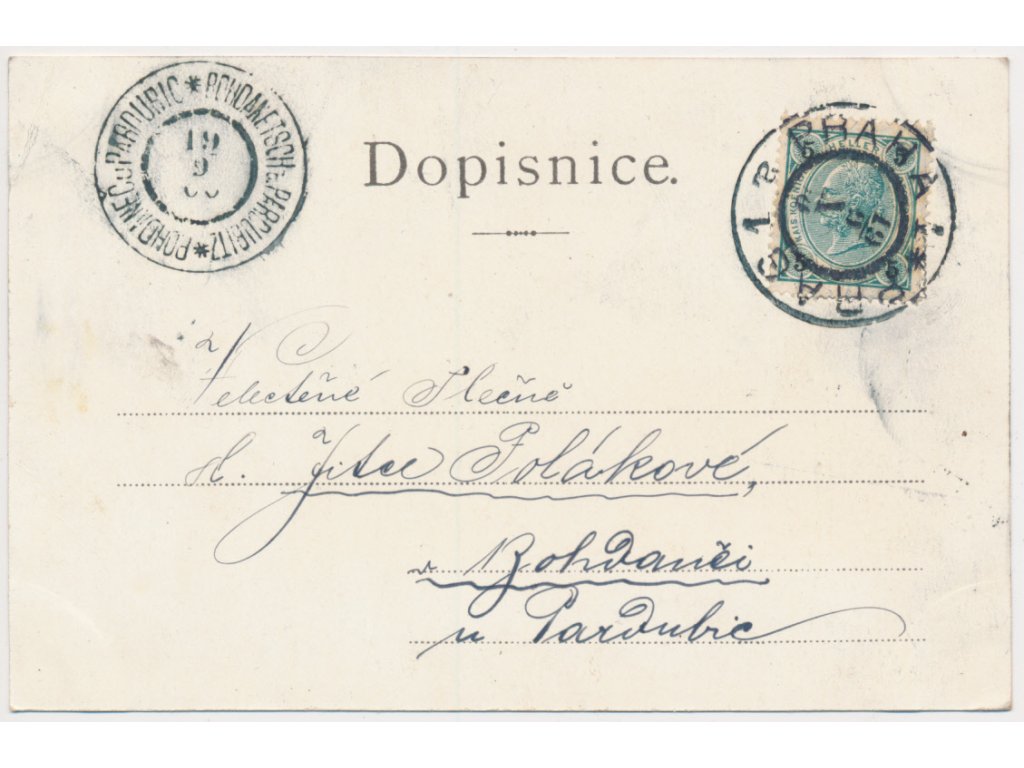 BOHDANEČ U PARDUBIC * BOHDANETSCH b. PARDUBITZ *
19
9
Dopisnice.
PRAHA 1
PRAG
Velectěné Slečně
sl. Jitce Polákové,
v Bohdanči
u Pardubic